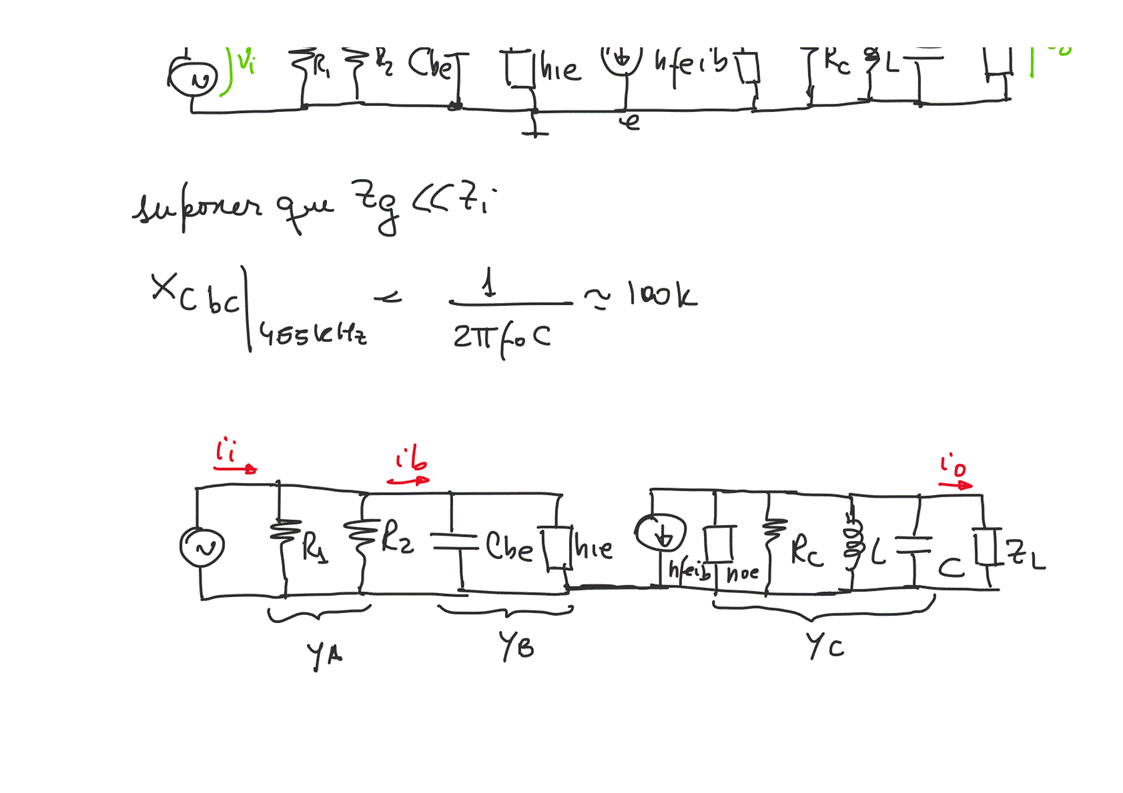 Vi R1 R2 Cbe hie hfeib RC L
e
suponer que Zg << Zi
XCbc|455KHz = 1 / 2πfoC ≈ 100k
ii ib io
R1 R2 Cbe hie hfeib hoe RC L C ZL
YA YB YC